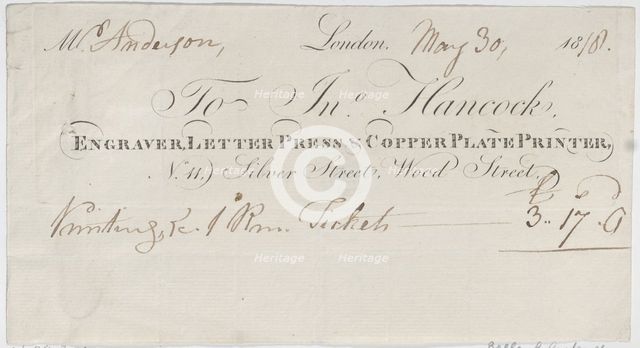 Mr. Anderson, London. May 30, 1818.
To Jno. Hancock,
ENGRAVER, LETTER PRESS & COPPER PLATE PRINTER,
No. 11, Silver Street, Wood Street.
£ s d
Printing, &c. 1 Rm. Tickets 3.. 17.. 6
Heritage Heritage
Heritage Heritage
Heritage Heritage